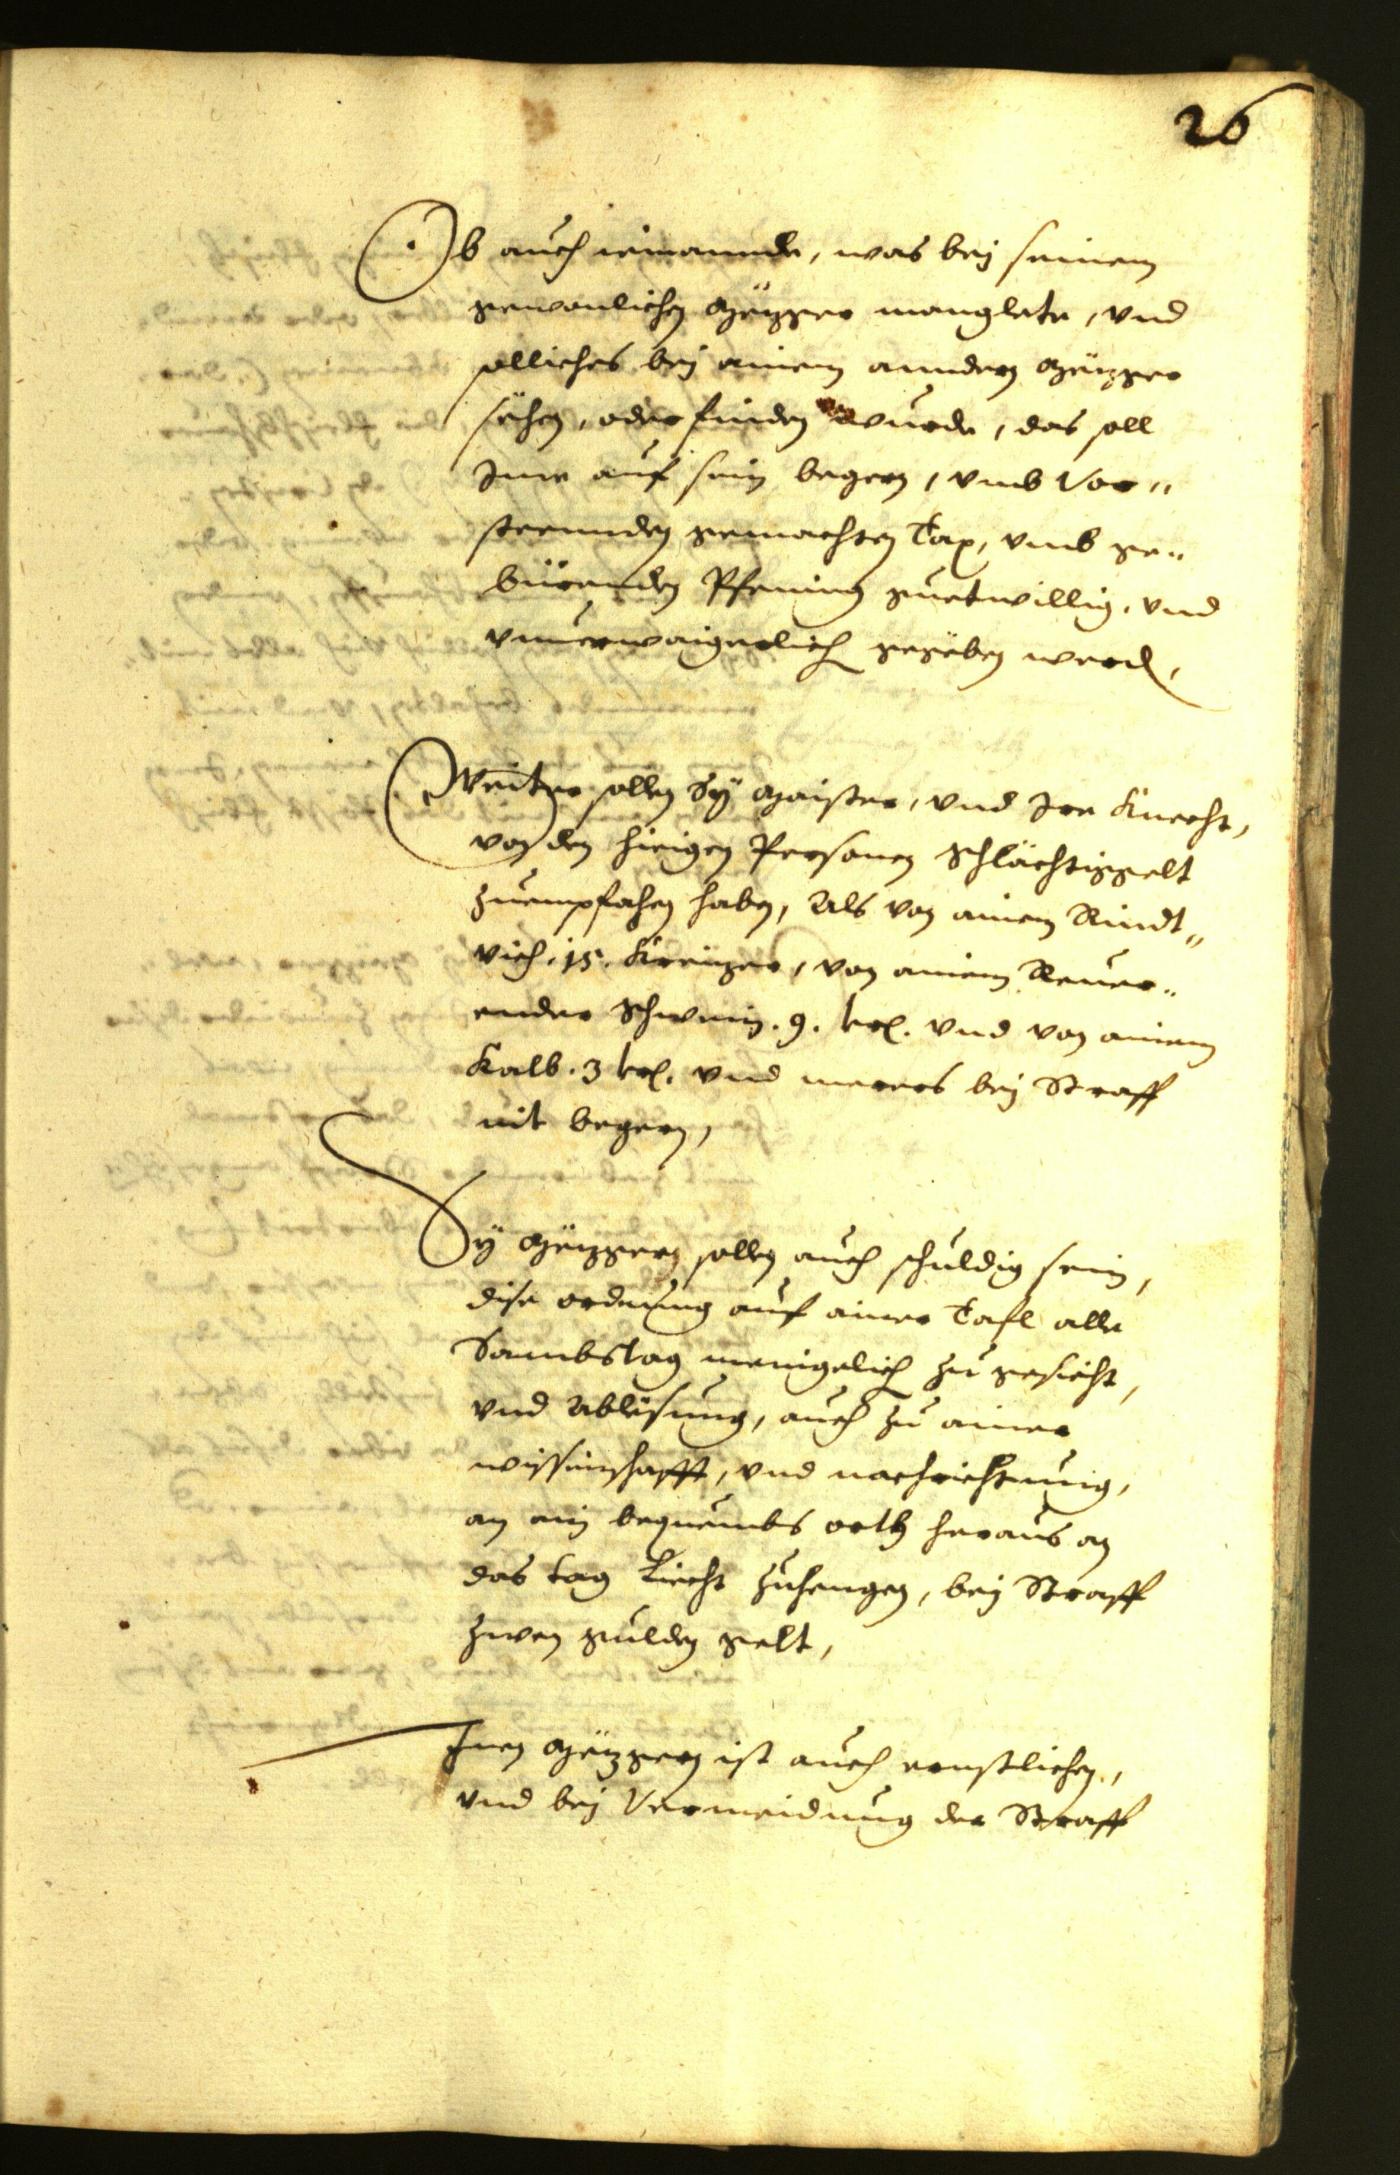 26
Ob auch iemannde, was bey seinem
gewonlichen Mezger manglete, vnd
solliches bey ainem anndern Mezger
sehen, oder finden wurde, das soll
Ime auf sein begern, vmb Vor„
steennden gemachten Tax, vmb ge„
bürenden Pfening guetwillig, vnd
vnuerwaigerlich gegeben werden,
Weiter sollen Sÿ Maister, vnd Ire Knecht,
von den hieigen Personen Schlächtiggelt
zuempfahen haben, Als von ainem Rindt„
vich .15. Kreuzer, von ainem Reuer„
ender Schwein .9. krl. vnd von ainem
Kalb .3 krl. vnd merers bey Straff
nit begern,
Sÿ Mezgern sollen auch schuldig sein,
dise ordnung auf ainer Tafl alle
Sambstag menigelich zu gesicht,
vnd Ablesung, auch zu ainer
wissenschafft, vnd nachrichtnung,
an ein bequembs orth heraus an
das tag Liecht zuhengen, bey Straff
zwen gulden gelt,
Inen Mezgern ist auch ernstlichen,
vnd bey Vermeidung der Straff